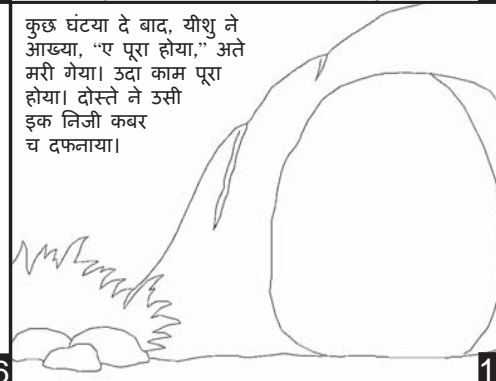 कुछ घंटया दे बाद, यीशु ने
आख्या, “ए पूरा होया,” अते
मरी गेया। उदा काम पूरा
होया। दोस्ते ने उसी
इक निजी कबर
च दफनाया।
6
1